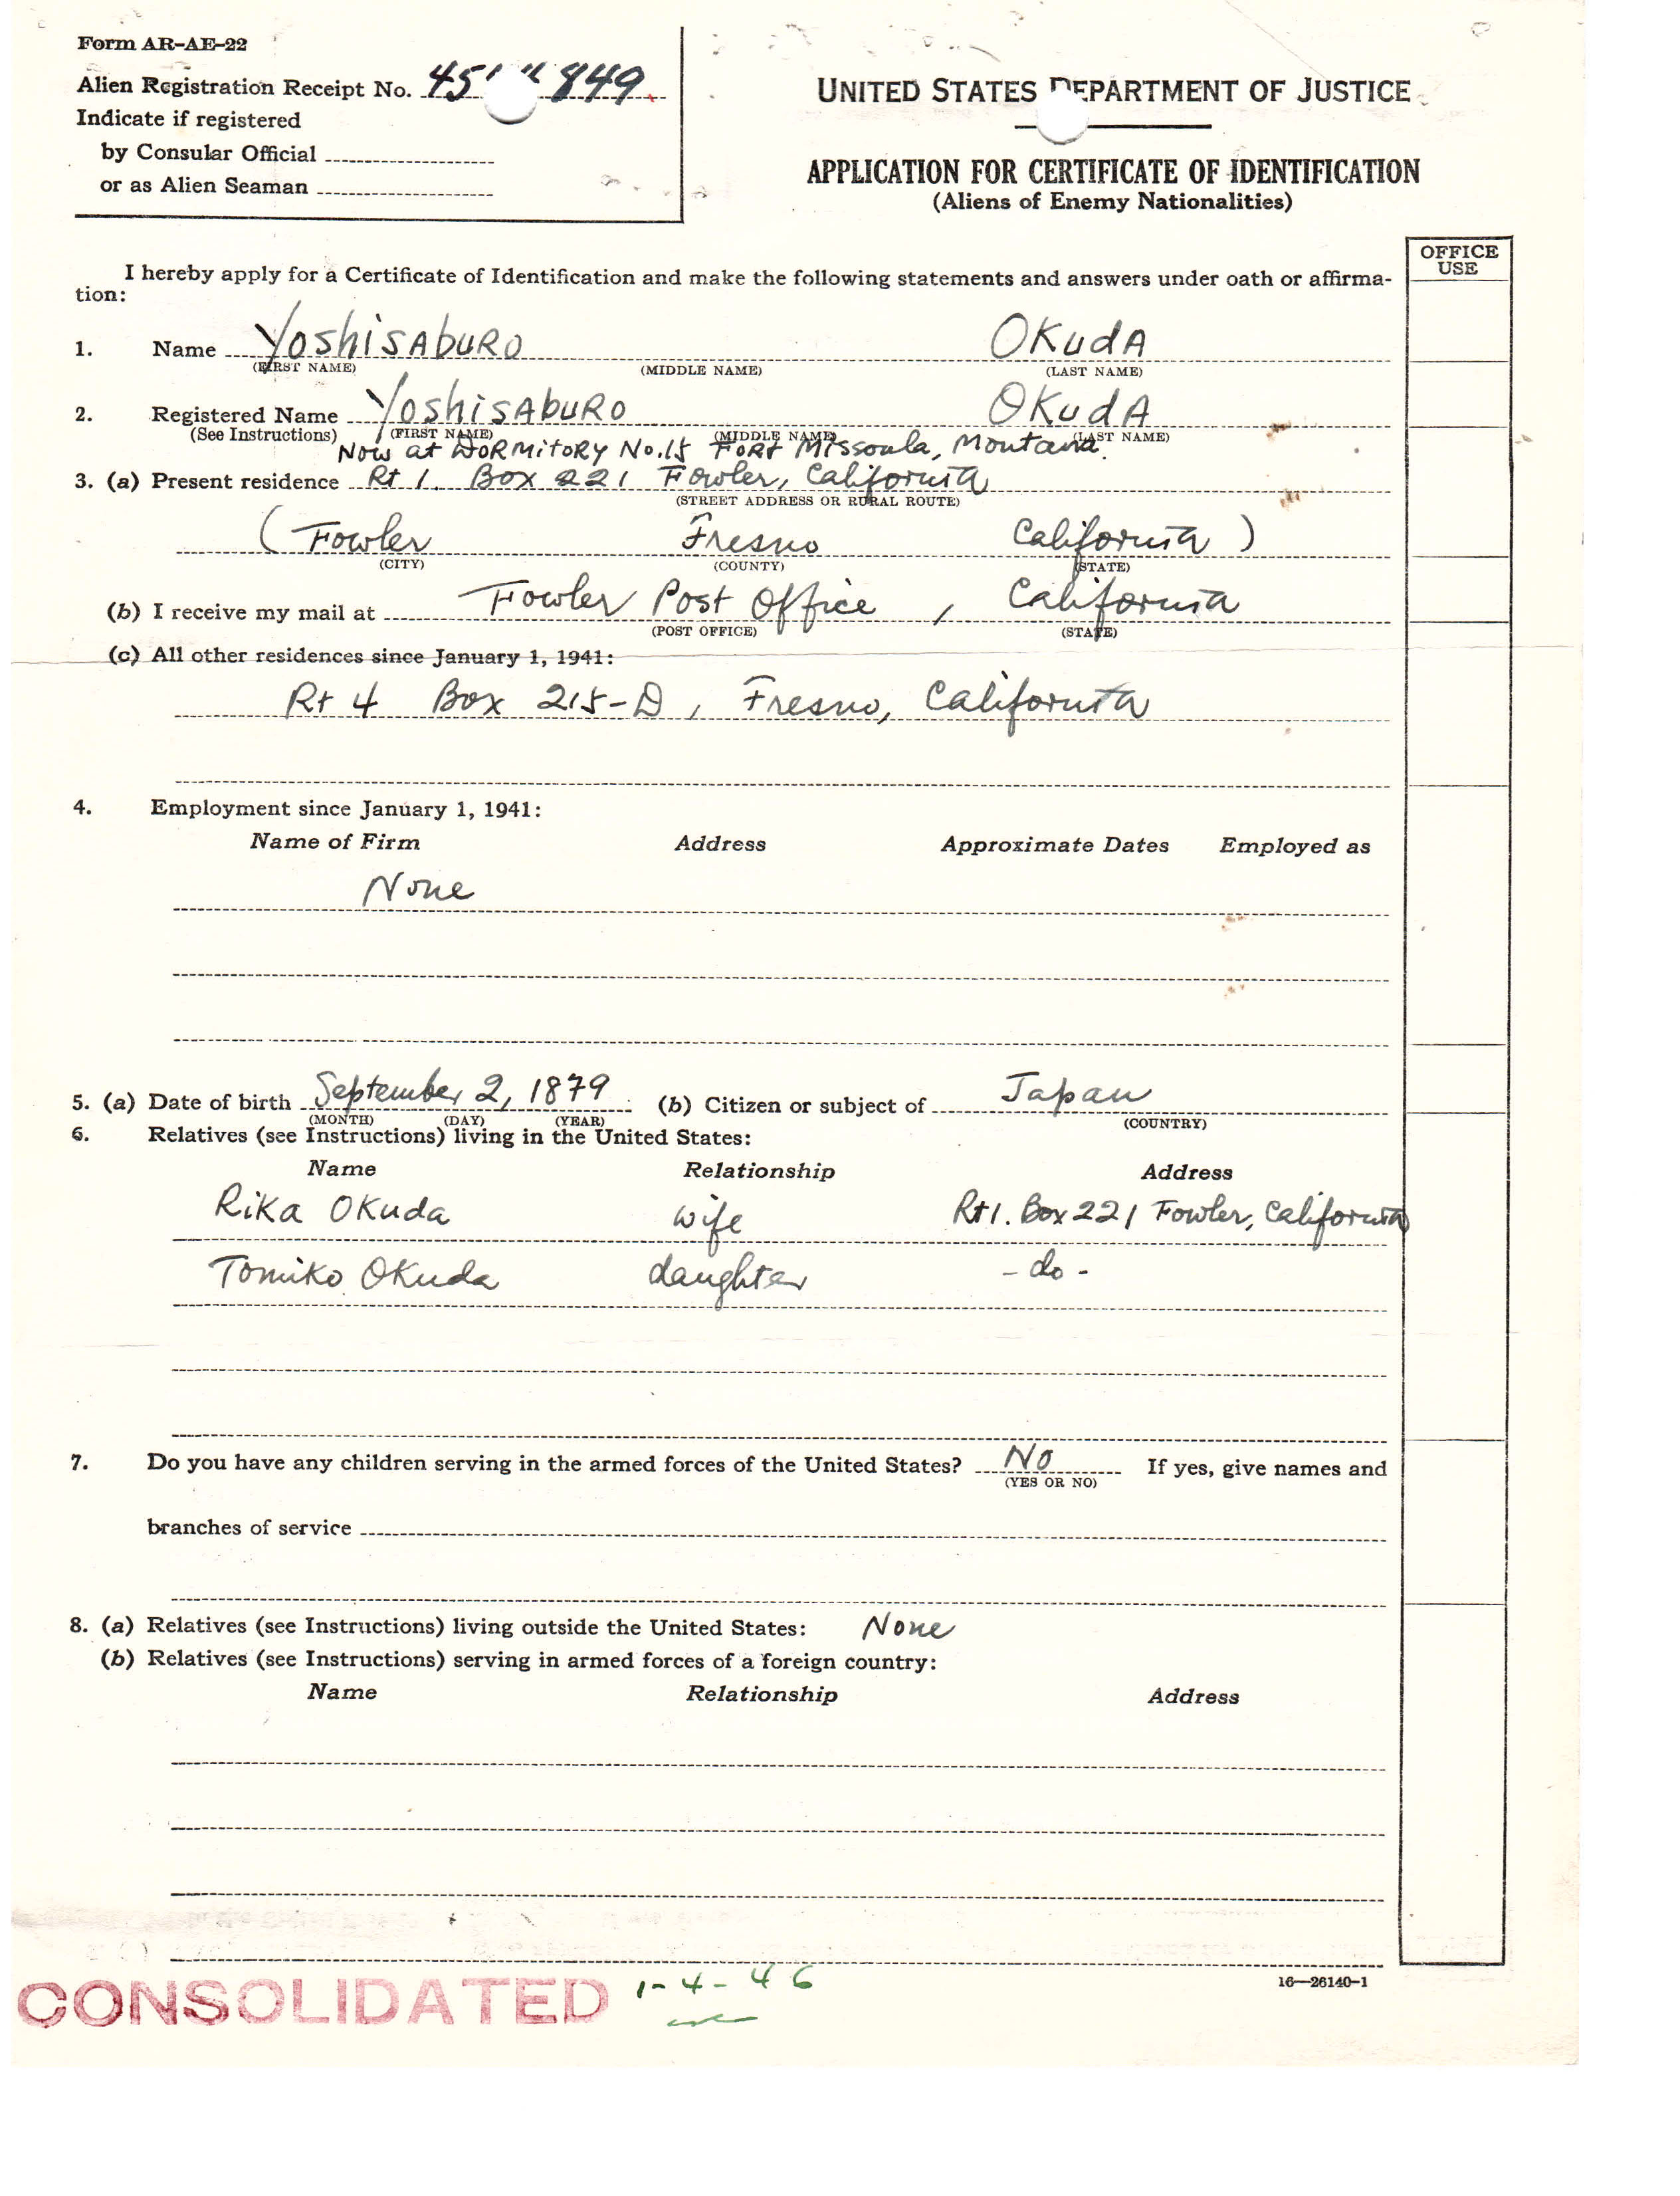 Form AR-AE-22
Alien Registration Receipt No. 45 849
Indicate if registered
by Consular Official
or as Alien Seaman
UNITED STATES DEPARTMENT OF JUSTICE
APPLICATION FOR CERTIFICATE OF IDENTIFICATION
(Aliens of Enemy Nationalities)
OFFICE
USE
I hereby apply for a Certificate of Identification and make the following statements and answers under oath or affirma-
tion:
1. Name Yoshisaburo Okuda
(FIRST NAME) (MIDDLE NAME) (LAST NAME)
2. Registered Name Yoshisaburo Okuda
(See Instructions) (FIRST NAME) (MIDDLE NAME) (LAST NAME)
Now at Dormitory No.15 Fort Missoula, Montana.
3. (a) Present residence Rt 1. Box 221 Fowler, California
(STREET ADDRESS OR RURAL ROUTE)
(Fowler Fresno California)
(CITY) (COUNTY) (STATE)
(b) I receive my mail at Fowler Post Office, California
(POST OFFICE) (STATE)
(c) All other residences since January 1, 1941:
Rt 4 Box 215-D, Fresno, California
4. Employment since January 1, 1941:
Name of Firm Address Approximate Dates Employed as
None
5. (a) Date of birth September 2, 1879 (b) Citizen or subject of Japan
(MONTH) (DAY) (YEAR) (COUNTRY)
6. Relatives (see Instructions) living in the United States:
Name Relationship Address
Rika Okuda wife Rt 1. Box 221 Fowler, California
Tomiko Okuda daughter - do -
7. Do you have any children serving in the armed forces of the United States? No If yes, give names and
(YES OR NO)
branches of service
8. (a) Relatives (see Instructions) living outside the United States: None
(b) Relatives (see Instructions) serving in armed forces of a foreign country:
Name Relationship Address
CONSOLIDATED 1-4-46
16—26140-1